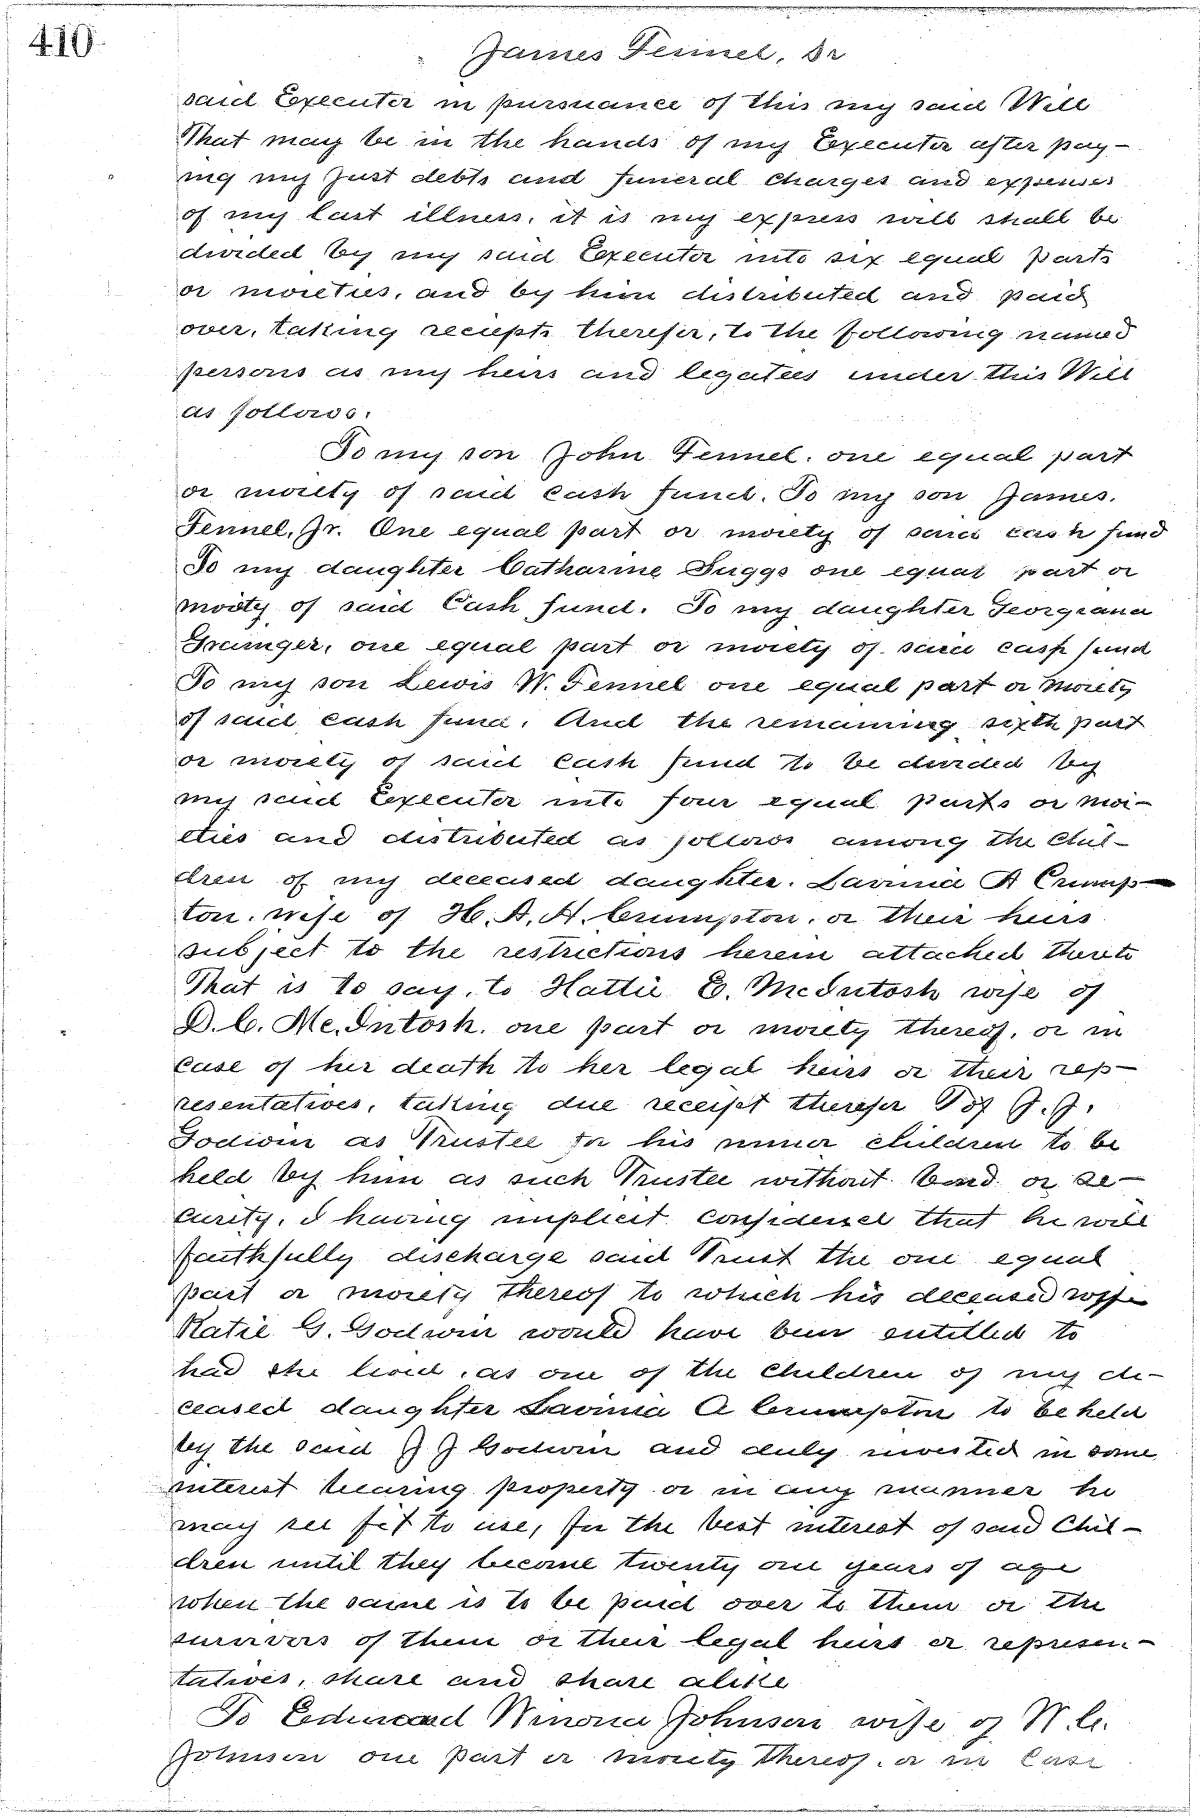 410
James Fennel, Sr
said Executor in pursuance of this my said Will
That may be in the hands of my Executor after pay-
ing my Just debts and funeral charges and expenses
of my last illness, it is my express will shall be
divided by my said Executor into six equal parts
or moieties, and by him distributed and paid
over, taking reciepts therefor, to the following named
persons as my heirs and legatees under this Will
as follows.
To my son John Fennel. one equal part
or moiety of said cash fund. To my son James.
Fennel, Jr. One equal part or moiety of said cash fund
To my daughter Catharine Suggs one equal part or
moiety of said Cash fund. To my daughter Georgiana
Grainger, one equal part or moiety of said cash fund
To my son Lewis W. Fennel one equal part or moiety
of said cash fund. And the remaining sixth part
or moiety of said cash fund to be divided by
my said Executor into four equal parts or moi-
eties and distributed as follows among the chil-
dren of my deceased daughter. Lavinia A Crump-
ton. wife of H. A. A. Crumpton. or their heirs
subject to the restrictions herein attached thereto
That is to say, to Hattie E. McIntosh wife of
D. C. Mc.Intosh. one part or moiety thereof. or in
case of her death to her legal heirs or their rep-
resentatives, taking due receipt therefor To J. J.
Godwin as Trustee for his minor children to be
held by him as such Trustee without bond or se-
curity, I having implicit confidence that he will
faithfully discharge said Trust the one equal
part or moiety thereof to which his deceased wife
Katie G. Godwin would have been entitled to
had she lived, as one of the children of my de-
ceased daughter Lavinia A Crumpton to be held
by the said J J Godwin and duly invested in some
interest bearing property or in any manner he
may see fit to use, for the best interest of said Chil-
dren until they become twenty one years of age
when the same is to be paid over to them or the
survivors of them or their legal heirs or represen-
tatives, share and share alike
To Winona Johnson wife of W. C.
Johnson one part or moiety thereof. or in Case